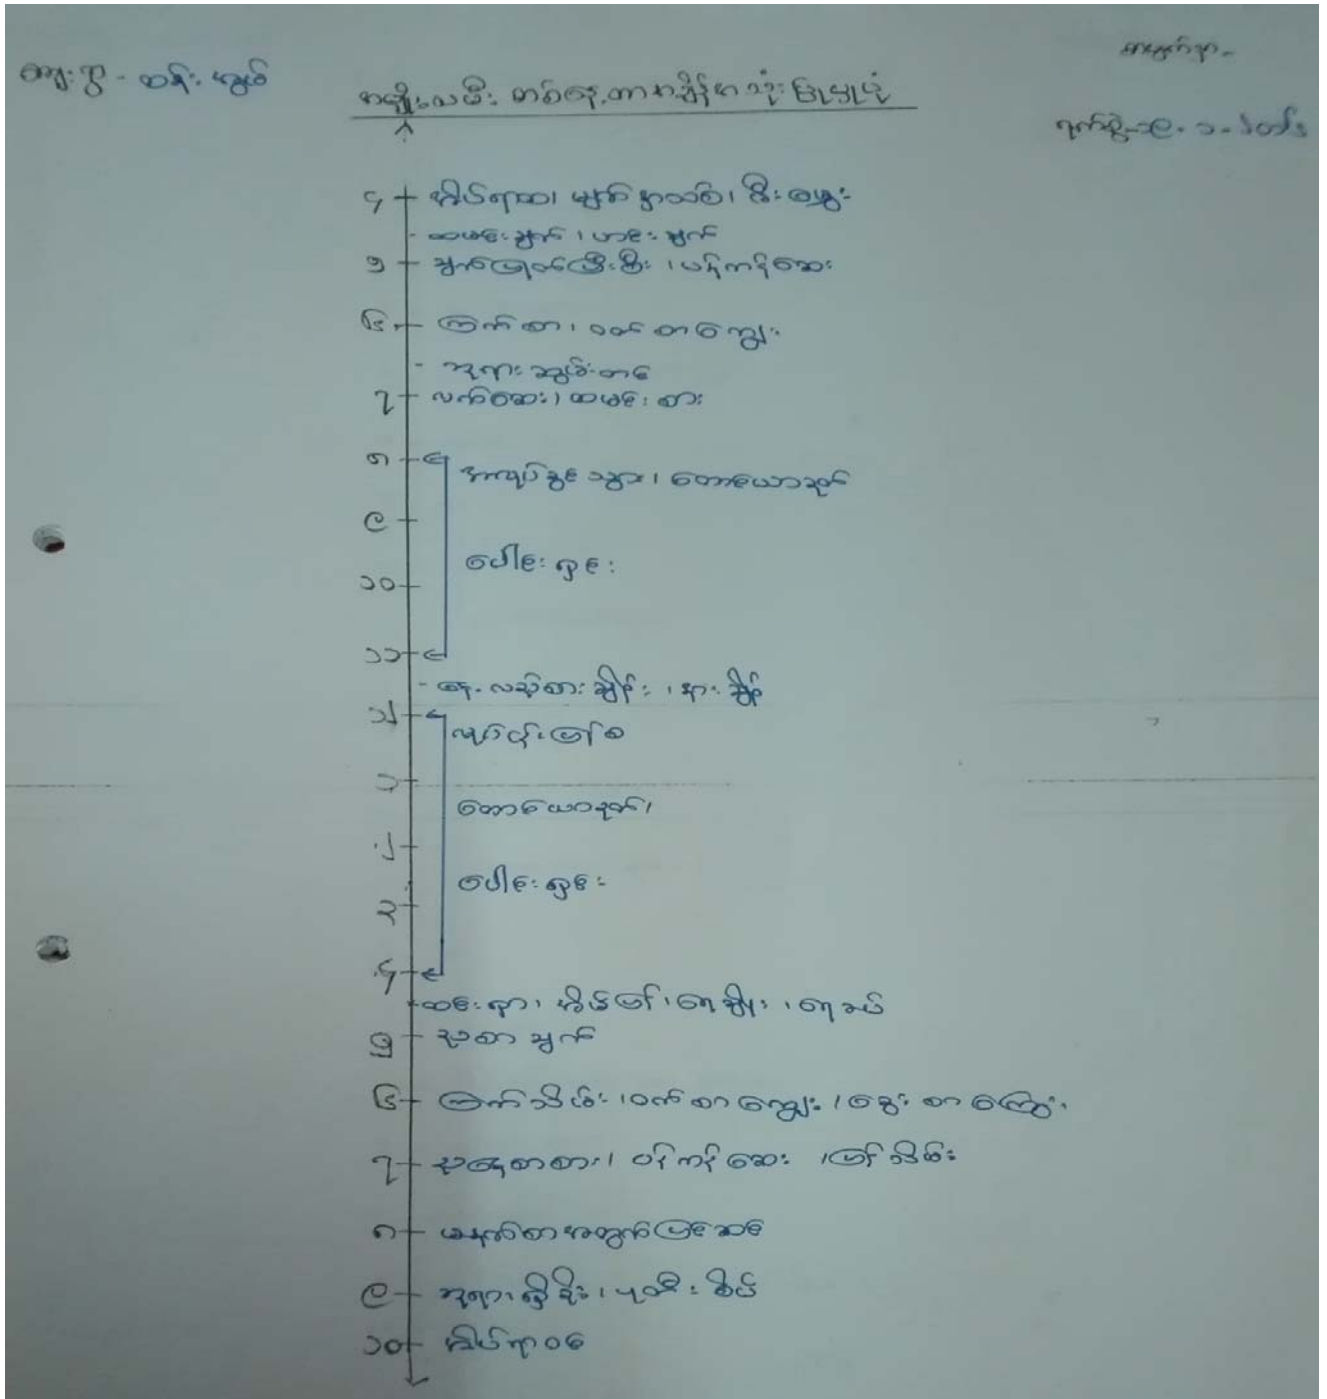 ကျေးရွာ - ထန်း
အမျိုးသမီး တစ်နေ့တာအချိန်အသုံးပြုမှုပုံ
၄ အိပ်ရာထ၊ မျက်နှာသစ်၊ မီးမွှေး
ထမင်းချက်၊ ဟင်းချက်
၅ ချက်ပြုတ်ပြီးစီး၊ ပန်းကန်ဆေး
၆ ကြက်စာ၊ ဝက်စာကျွေး
ဘုရားဆွမ်းတင်
၇ လက်ဆေး၊ ထမင်းစား
၈ အလုပ်ခွင်သွား၊ တောင်ယာခုတ်
၉
ပေါင်းရှင်း
၁၀
၁၁
နေ့လည်စားချိန်း၊ နားချိန်
၁၂ လုပ်ငန်းပြန်စ
၁
တောင်ယာခုတ်၊
၂
ပေါင်းရှင်း
၃
၄
ထင်းရှာ၊ အိမ်ပြန်၊ ရေချိုး၊ ရေခပ်
၅ ညစာချက်
၆ ကြက်သိမ်း၊ ဝက်စာကျွေး၊ ခွေးစာကျွေး
၇ ညနေစာစား၊ ပန်းကန်ဆေး၊ ပြန်သိမ်း
၈ မနက်စာအတွက်ပြင်ဆင်
၉ ဘုရားရှိခိုး၊ ပုတီးစိပ်
၁၀ အိပ်ရာဝင်